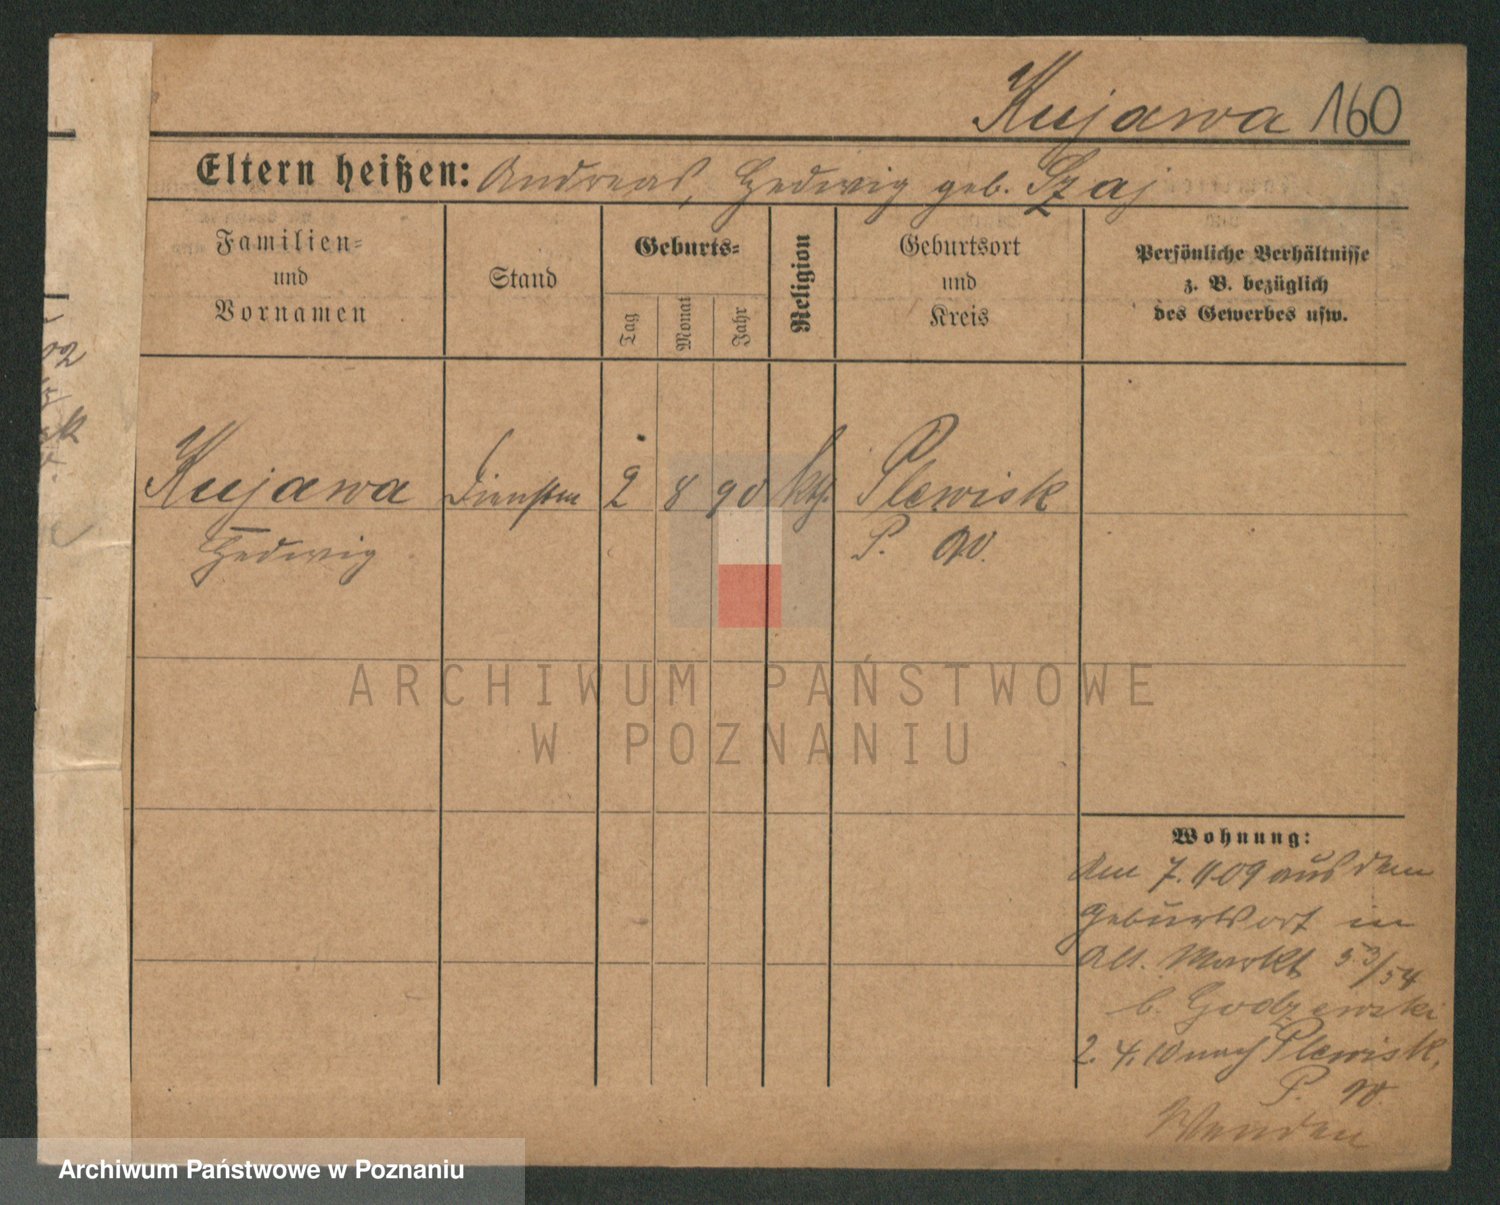 Kujawa 160
Eltern heißen: Andreas, Hedwig geb. Szaj
Familien-
und
Vornamen
Stand
Geburts-
Tag
Monat
Jahr
Religion
Geburtsort
und
Kreis
Persönliche Verhältnisse
z. B. bezüglich
des Gewerbes usw.
Kujawa 2 8 90 kth. Plewisk
Hedwig P. W.
Wohnung:
Am 7. 09 aus dem
Geburtsort in
Alt. Markt 53/54
b. Godzewski
2. 4. 10 nach Plewisk,
P. W.
ARCHIWUM PAŃSTWOWE
W POZNANIU
Archiwum Państwowe w Poznaniu